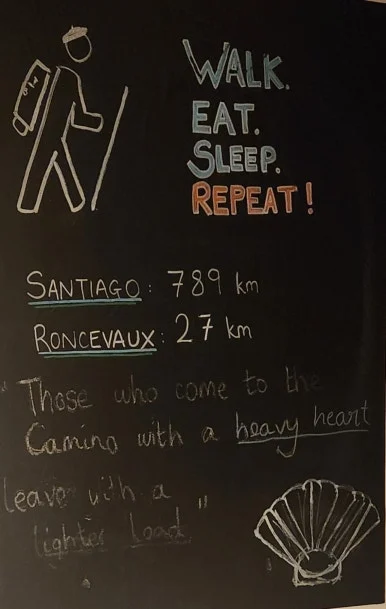 WALK.
EAT.
SLEEP.
REPEAT!
SANTIAGO: 789 km
RONCEVAUX: 27 km
"Those who come to the
Camino with a heavy heart
leave with a
lighter heart"